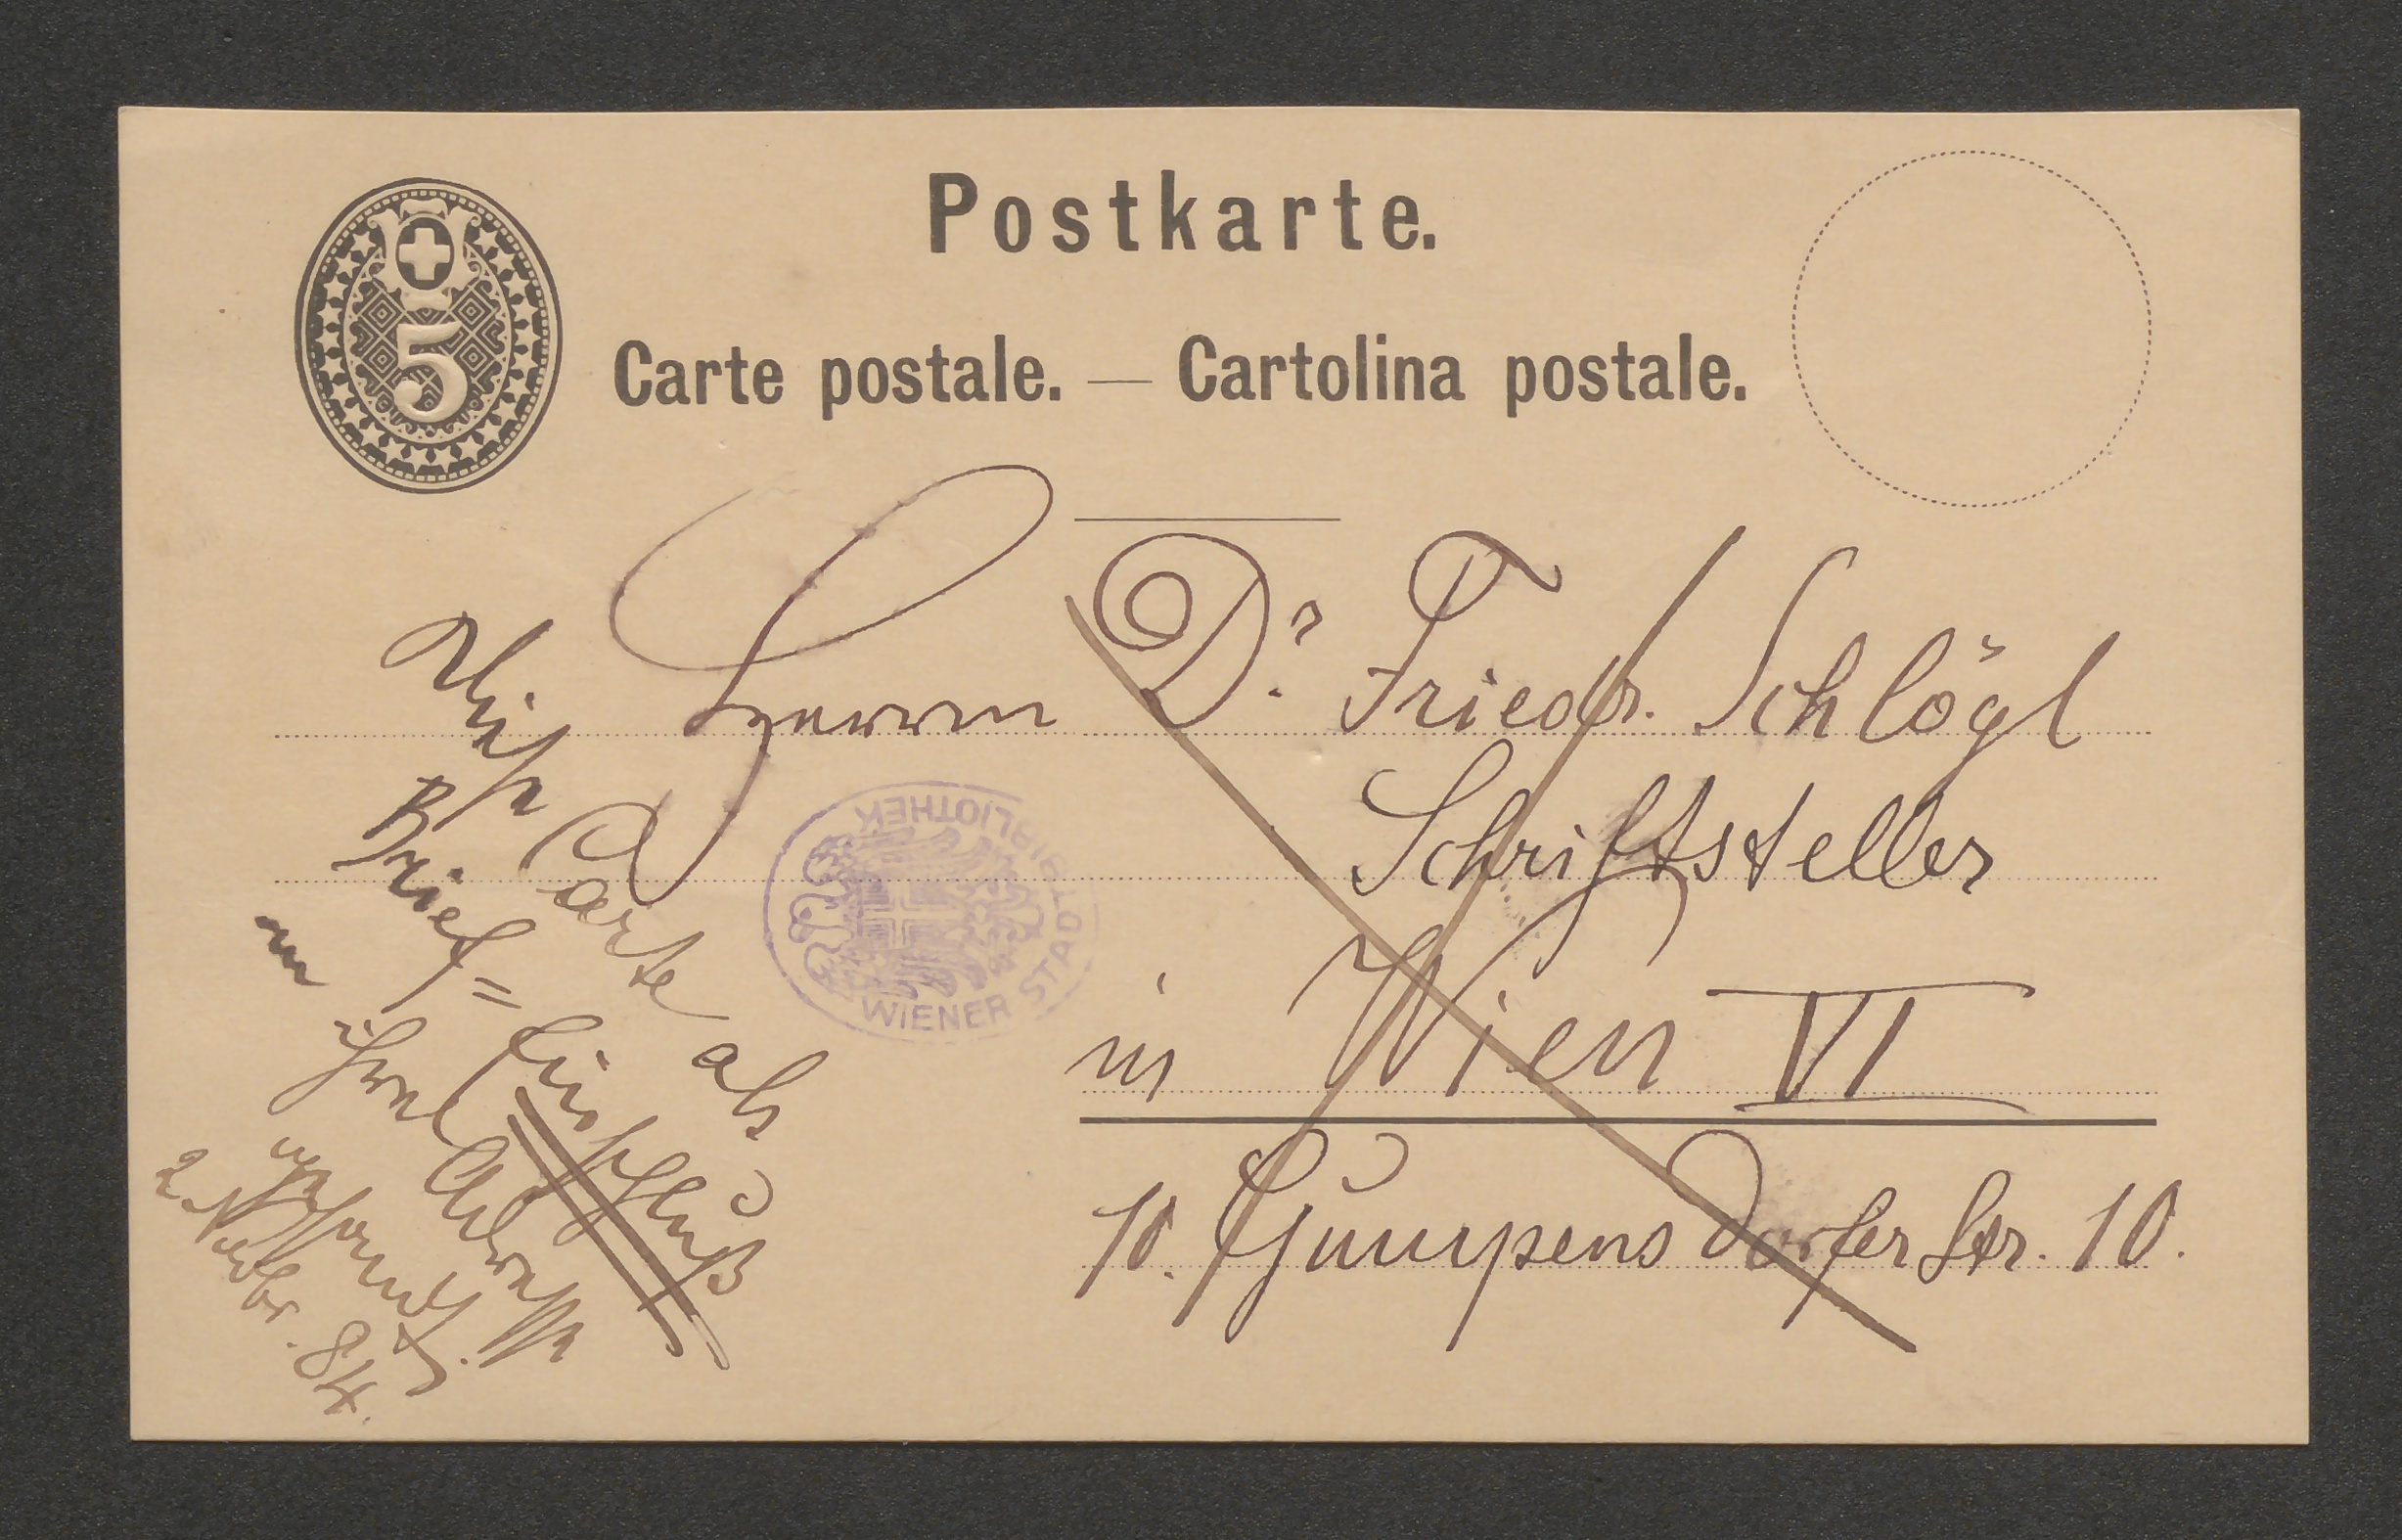 Postkarte.
Carte postale. — Cartolina postale.
5
Herrn Dr. Friedr. Schlögl
Schriftsteller
in Wien VI
10. Gumpensdorferstr. 10.
Diese Carte als
Brief= Einschluß
an ihre Adresse
gesandt.
2 Novbr. 84.
WIENER STADTBIBLIOTHEK